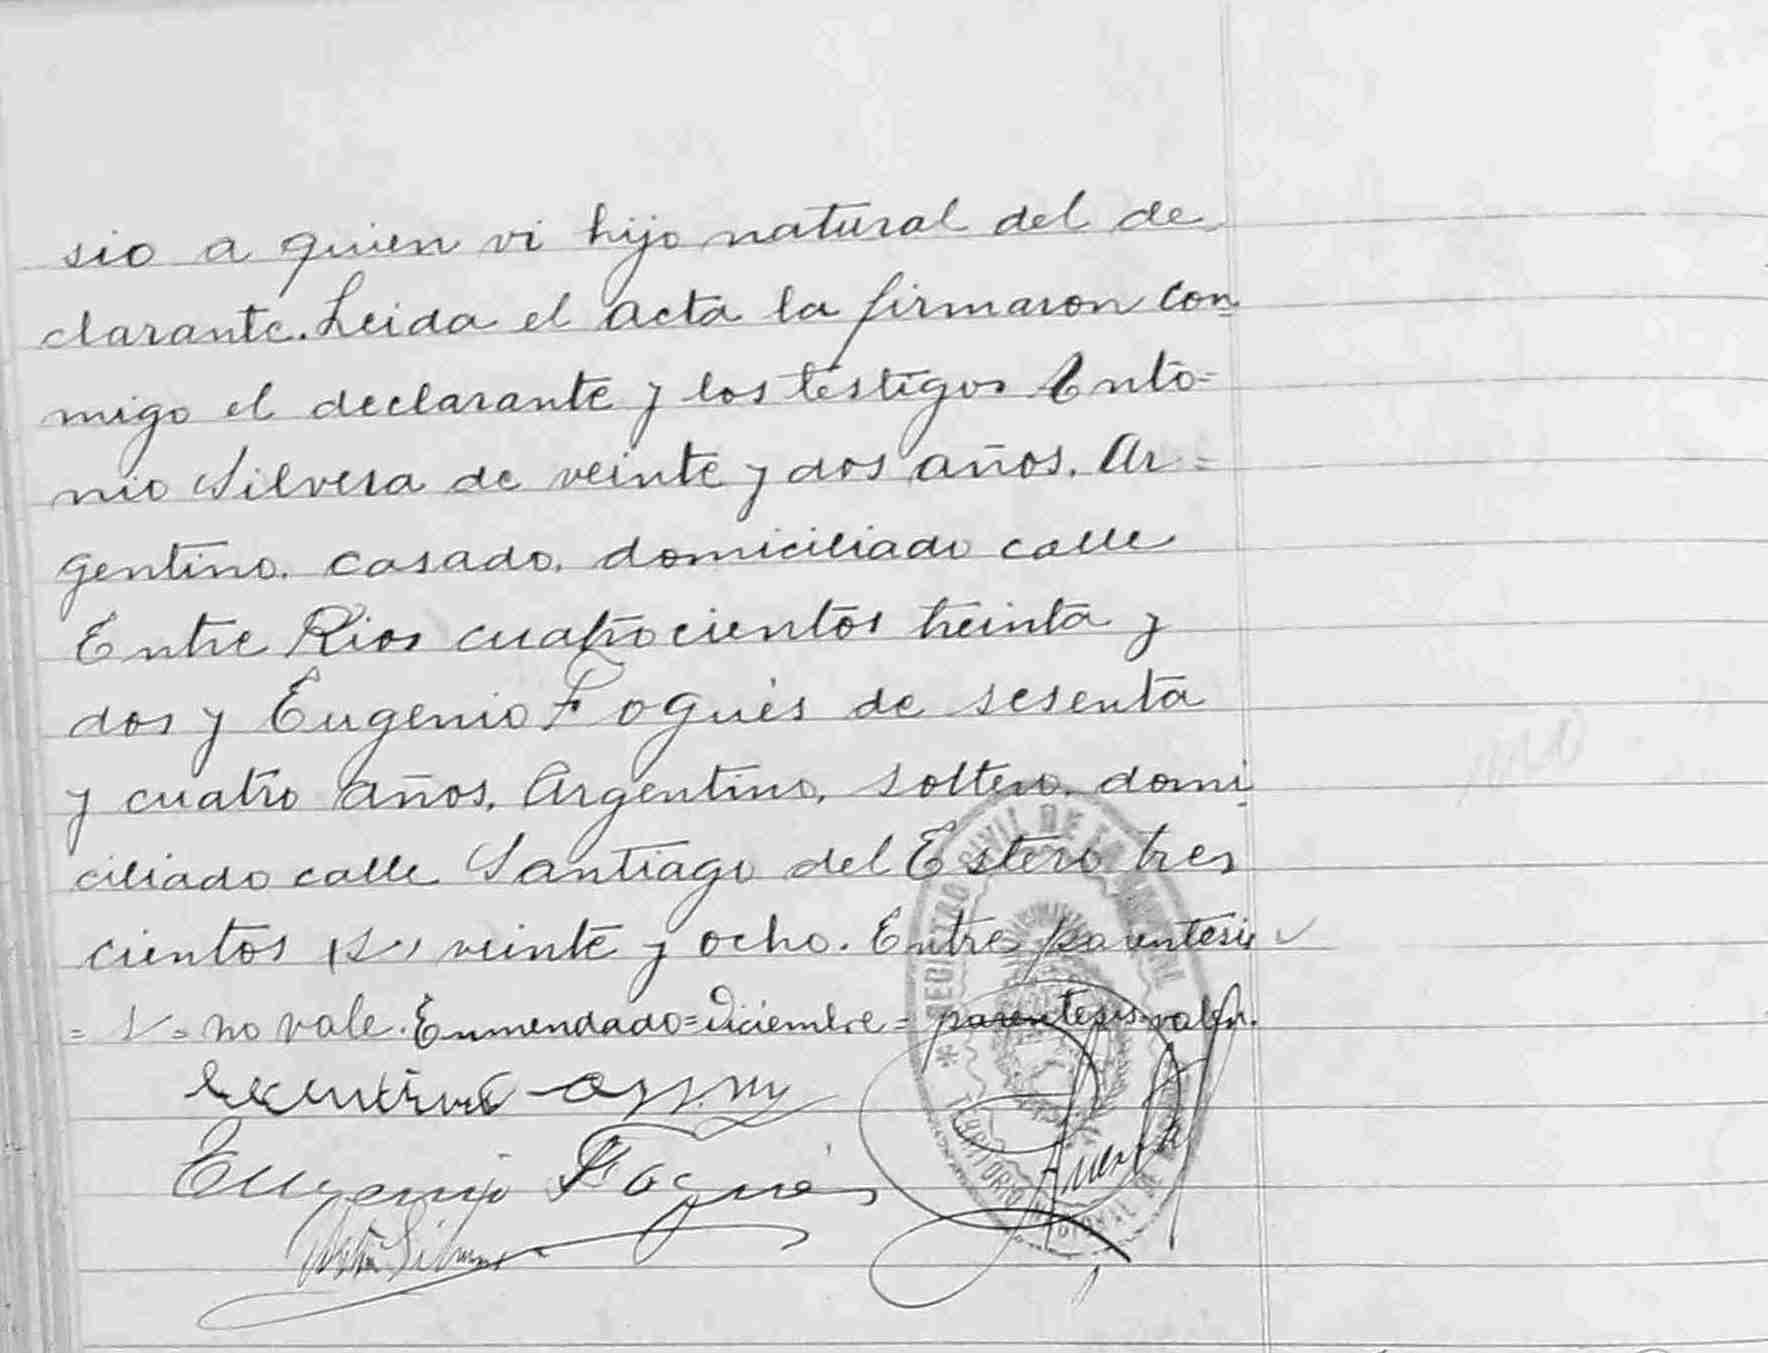 sio a quien vi hijo natural del de
clarante. Leida el acta la firmaron con
migo el declarante y los testigos Anto=
nio Silvera de veinte y dos años. Ar=
gentino. casado. domiciliado calle
Entre Rios cuatrocientos treinta y
dos y Eugenio Fogués de sesenta
y cuatro años, Argentino, soltero. domi
ciliado calle Santiago del Estero tres
cientos (s) veinte y ocho. Entre parentesis
= s = no vale. Enmendado = diciembre = parentesis valen.
Eugenio Fogués
REGISTRO CIVIL DE LA CAPITAL
TERRITORIO NACIONAL DE